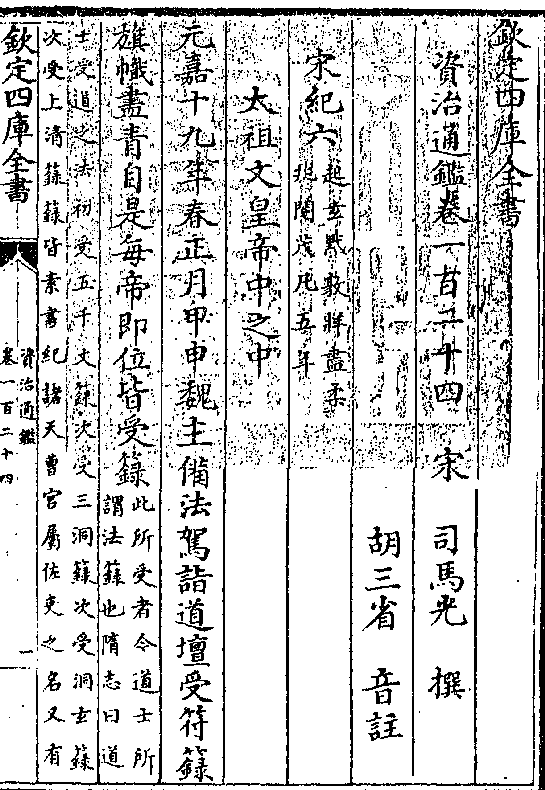 欽定四庫全書
資治通鑑卷一百二十四
宋 司馬光 撰
胡三省 音註
宋紀六
起玄黓敦牂盡柔
兆閹茂凡五年
太祖文皇帝中之中
元嘉十九年春正月甲申魏主備法駕詣道壇受符籙
旗幟盡青自是每帝即位皆受籙
此所受者今道士所
謂法籙也隋志曰道
士受道之法初受五千文籙次受三洞籙次受洞玄籙
次受上清籙籙皆素書紀諸天曹官屬佐吏之名又有
欽定四庫全書
資治通鑑
卷一百二十四
一